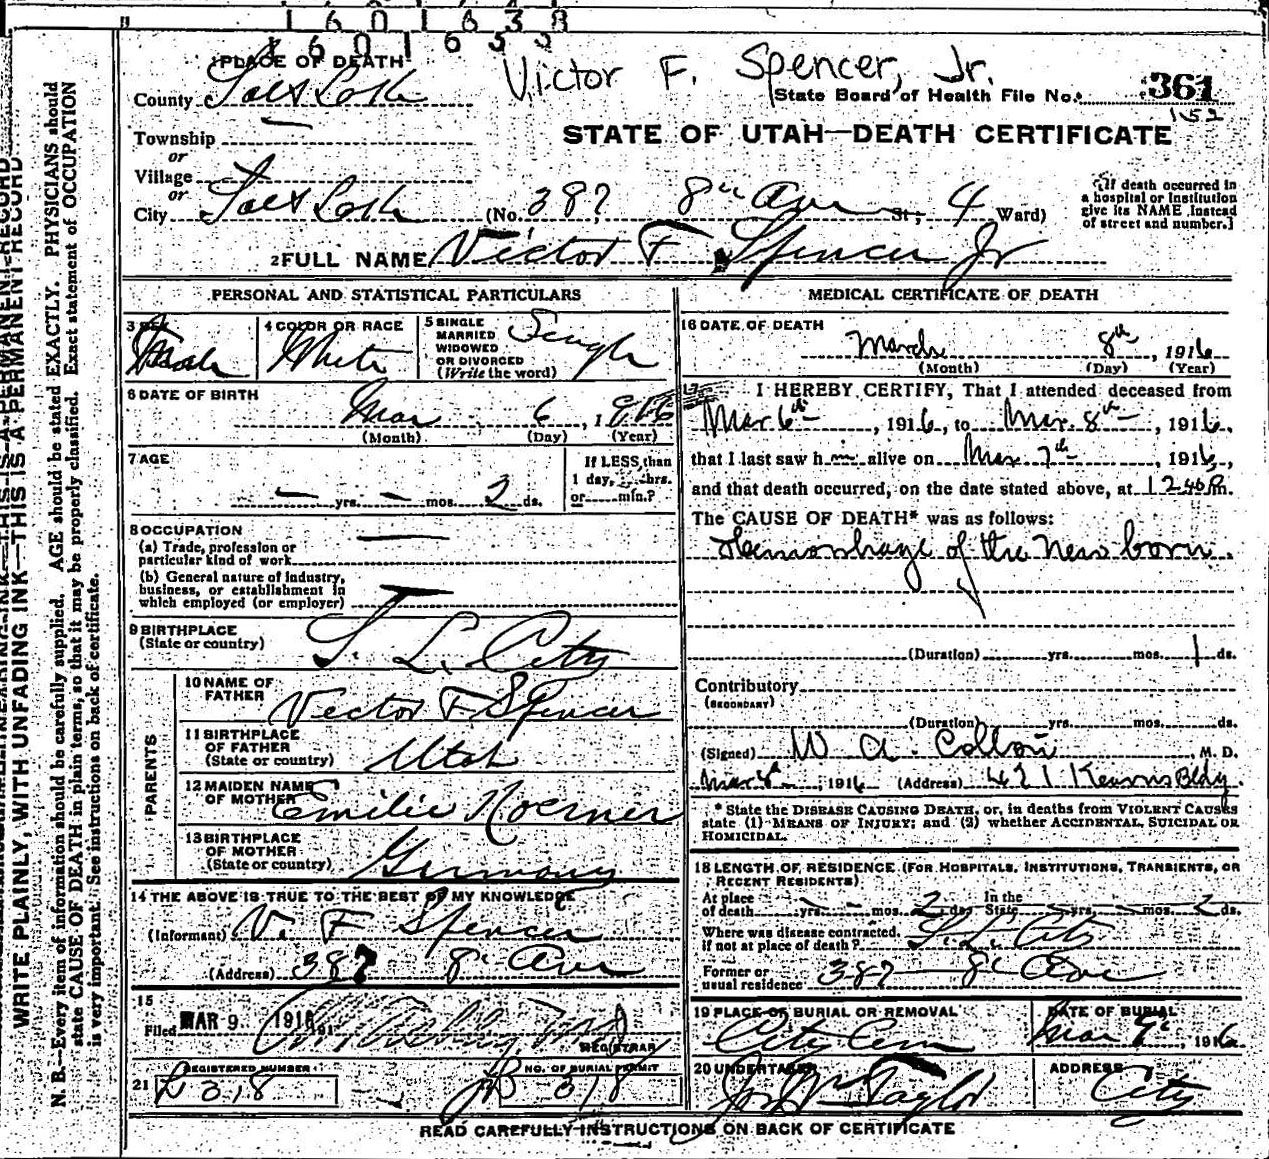 1601638
PLACE OF DEATH
Victor F. Spencer, Jr.
County Salt Lake
State Board of Health File No. 361
152
Township
STATE OF UTAH—DEATH CERTIFICATE
or
Village
or
City Salt Lake (No. 387 8th Ave St; 4 Ward)
[If death occurred in a hospital or institution give its NAME instead of street and number.]
2 FULL NAME Victor F. Spencer Jr
PERSONAL AND STATISTICAL PARTICULARS
3 SEX Male
4 COLOR OR RACE White
5 SINGLE MARRIED WIDOWED OR DIVORCED (Write the word) Single
6 DATE OF BIRTH Mar 6, 1916
(Month) (Day) (Year)
7 AGE — yrs. — mos. 2 ds.
If LESS than 1 day, hrs. or min.?
8 OCCUPATION
(a) Trade, profession or particular kind of work
(b) General nature of industry, business, or establishment in which employed (or employer)
9 BIRTHPLACE (State or country) S. L. City
PARENTS
10 NAME OF FATHER Victor F Spencer
11 BIRTHPLACE OF FATHER (State or country) Utah
12 MAIDEN NAME OF MOTHER Emilie Koerner
13 BIRTHPLACE OF MOTHER (State or country) Germany
14 THE ABOVE IS TRUE TO THE BEST OF MY KNOWLEDGE
(Informant) V. F Spencer
(Address) 387 8th Ave
15
Filed MAR 9 1916
REGISTRAR
REGISTERED NUMBER
NO. OF BURIAL PERMIT
21 D 318 B 318
MEDICAL CERTIFICATE OF DEATH
16 DATE OF DEATH
March 8th, 1916
(Month) (Day) (Year)
17 I HEREBY CERTIFY, That I attended deceased from
Mar 6th, 1916, to Mar. 8th, 1916,
that I last saw him alive on Mar 7th, 1916,
and that death occurred, on the date stated above, at 12 40 P.m.
The CAUSE OF DEATH* was as follows:
Hemorrhage of the New born.
(Duration) yrs. mos. 1 ds.
Contributory
(SECONDARY)
(Duration) yrs. mos. ds.
(Signed) W. A. M. D.
Mar 8th, 1916 (Address) 421 Kearns Bldg.
* State the DISEASE CAUSING DEATH, or, in deaths from VIOLENT CAUSES
state (1) MEANS OF INJURY; and (2) whether ACCIDENTAL, SUICIDAL OR
HOMICIDAL.
18 LENGTH OF RESIDENCE (FOR HOSPITALS, INSTITUTIONS, TRANSIENTS, OR
RECENT RESIDENTS)
At place of death — yrs. — mos. 2 ds. In the State — yrs. — mos. 2 ds.
Where was disease contracted, if not at place of death? S. L. City
Former or usual residence 387 8th Ave
19 PLACE OF BURIAL OR REMOVAL City Cem
DATE OF BURIAL Mar 9th, 1916
20 UNDERTAKER Jos Wm Taylor
ADDRESS City
READ CAREFULLY INSTRUCTIONS ON BACK OF CERTIFICATE
WRITE PLAINLY, WITH UNFADING INK—THIS IS A PERMANENT RECORD
N. B.—Every item of information should be carefully supplied. AGE should be stated EXACTLY. PHYSICIANS should
state CAUSE OF DEATH in plain terms, so that it may be properly classified. Exact statement of OCCUPATION
is very important. See instructions on back of certificate.